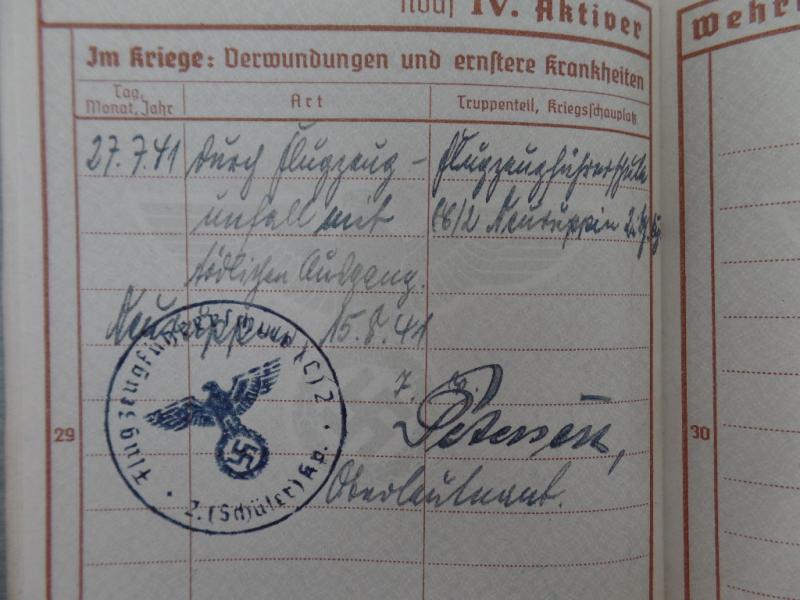 IV. Aktiver
Wehr
Im Kriege: Verwundungen und ernstere Krankheiten
Tag, Monat, Jahr
Art
Truppenteil, Kriegsschauplatz
27.7.41
durch Flugzeug-
unfall mit
tödlichen Ausgang.
Flugzeugführerschule
Neuruppin 2.
Neuruppin, 15.8.41
Petersen,
Oberleutnant.
Flugzeugführerschule (C) 2
2. (Schüler) Kp.
29
30